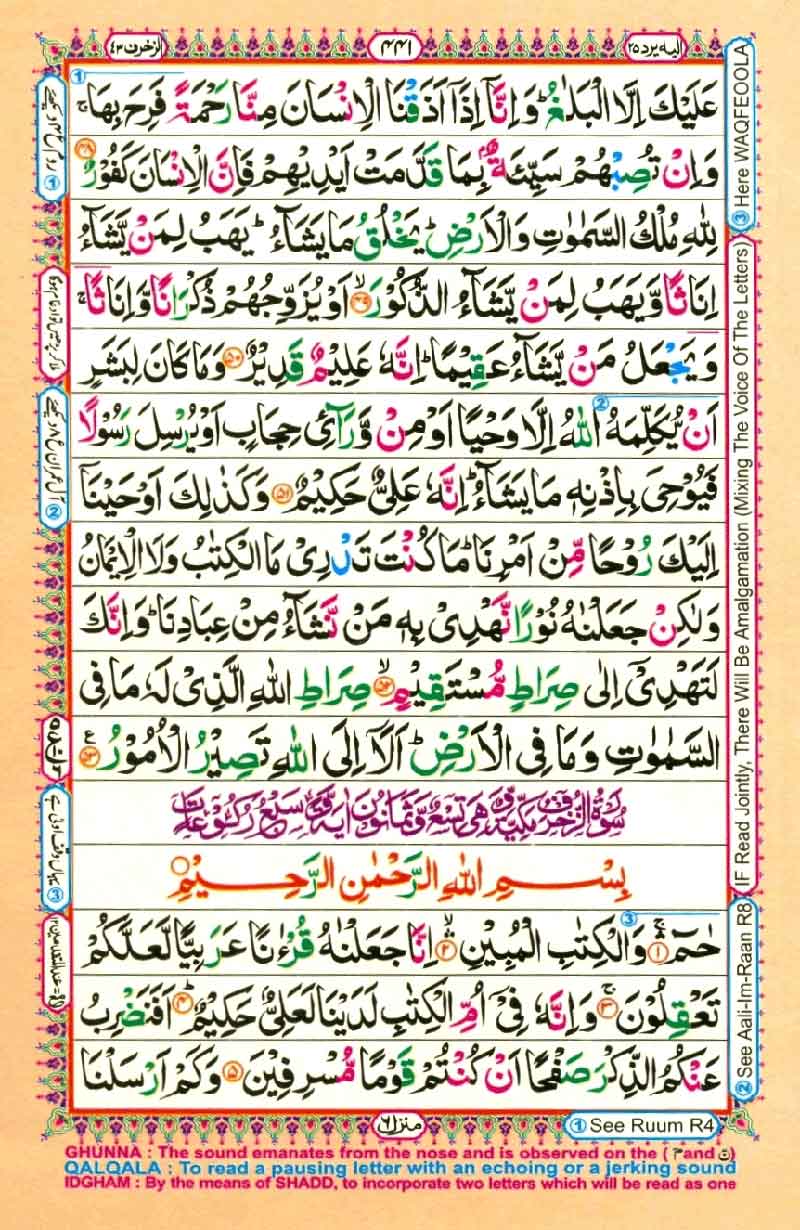 الزخرف ٤٣
٤٤١
اليه يرد ٢٥
عَلَيْكَ اِلَّا الْبَلٰغُ ؕ وَاِنَّاۤ اِذَاۤ اَذَقْنَا الْاِنْسَانَ مِنَّا رَحْمَةً فَرِحَ بِهَا ۚ
وَاِنْ تُصِبْهُمْ سَيِّئَةٌۢ بِمَا قَدَّمَتْ اَيْدِيْهِمْ فَاِنَّ الْاِنْسَانَ كَفُوْرٌ ﴿۴۸﴾
لِلّٰهِ مُلْكُ السَّمٰوٰتِ وَالْاَرْضِ ؕ يَخْلُقُ مَا يَشَآءُ ؕ يَهَبُ لِمَنْ يَّشَآءُ
اِنَاثًا وَّيَهَبُ لِمَنْ يَّشَآءُ الذُّكُوْرَ ﴿۴۹﴾ اَوْ يُزَوِّجُهُمْ ذُكْرَانًا وَّاِنَاثًا ۚ
وَيَجْعَلُ مَنْ يَّشَآءُ عَقِيْمًا ؕ اِنَّهٗ عَلِيْمٌ قَدِيْرٌ ﴿۵۰﴾ وَمَا كَانَ لِبَشَرٍ
اَنْ يُّكَلِّمَهُ اللّٰهُ اِلَّا وَحْيًا اَوْ مِنْ وَّرَآئِ حِجَابٍ اَوْ يُرْسِلَ رَسُوْلًا
فَيُوْحِىَ بِاِذْنِهٖ مَا يَشَآءُ ؕ اِنَّهٗ عَلِىٌّ حَكِيْمٌ ﴿۵۱﴾ وَكَذٰلِكَ اَوْحَيْنَاۤ
اِلَيْكَ رُوْحًا مِّنْ اَمْرِنَا ؕ مَا كُنْتَ تَدْرِىْ مَا الْكِتٰبُ وَلَا الْاِيْمَانُ
وَلٰكِنْ جَعَلْنٰهُ نُوْرًا نَّهْدِىْ بِهٖ مَنْ نَّشَآءُ مِنْ عِبَادِنَا ؕ وَاِنَّكَ
لَتَهْدِىْۤ اِلٰى صِرَاطٍ مُّسْتَقِيْمٍ ﴿۵۲﴾ صِرَاطِ اللّٰهِ الَّذِىْ لَهٗ مَا فِى
السَّمٰوٰتِ وَمَا فِى الْاَرْضِ ؕ اَلَاۤ اِلَى اللّٰهِ تَصِيْرُ الْاُمُوْرُ ﴿۵۳﴾
سُوْرَةُ الزُّخْرُفِ مَكِّيَّةٌ وَّهِىَ تِسْعٌ وَّثَمَانُوْنَ اٰيَةً وَّسَبْعُ رُكُوْعَاتٍ
بِسْمِ اللّٰهِ الرَّحْمٰنِ الرَّحِيْمِ
حٰمٓ ﴿۱﴾ وَالْكِتٰبِ الْمُبِيْنِ ﴿۲﴾ اِنَّا جَعَلْنٰهُ قُرْءٰنًا عَرَبِيًّا لَّعَلَّكُمْ
تَعْقِلُوْنَ ﴿۳﴾ وَاِنَّهٗ فِىْۤ اُمِّ الْكِتٰبِ لَدَيْنَا لَعَلِىٌّ حَكِيْمٌ ﴿۴﴾ اَفَنَضْرِبُ
عَنْكُمُ الذِّكْرَ صَفْحًا اَنْ كُنْتُمْ قَوْمًا مُّسْرِفِيْنَ ﴿۵﴾ وَكَمْ اَرْسَلْنَا
منزل ٦
① See Ruum R4
② See Aali-Im-Raan R8
IF Read Jointly, There Will Be Amalgamation (Mixing The Voice Of The Letters)
③ Here WAQFEOOLA
GHUNNA : The sound emanates from the nose and is observed on the ( م and ن )
QALQALA : To read a pausing letter with an echoing or a jerking sound
IDGHAM : By the means of SHADD, to incorporate two letters which will be read as one